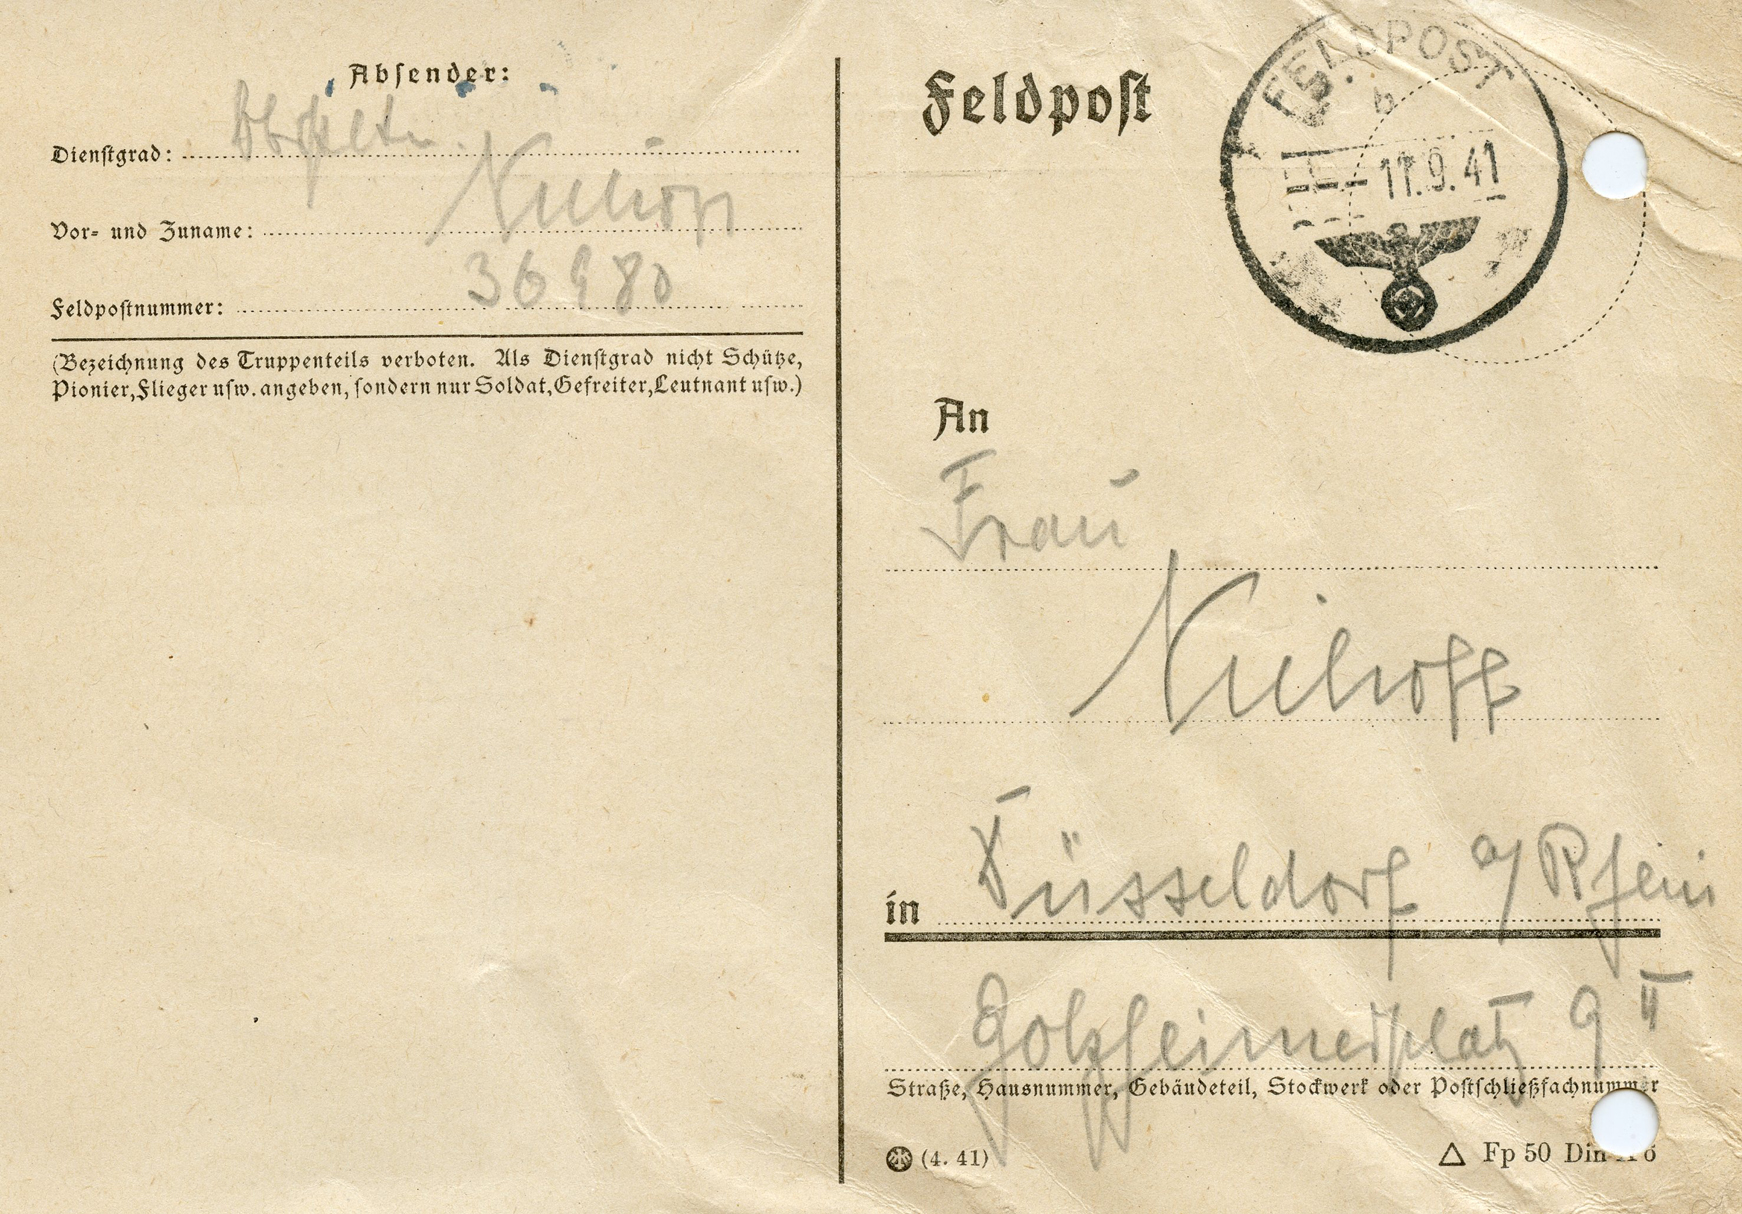 Absender:
Dienstgrad:
Vor- und Zuname: Niehoff
Feldpostnummer: 36980
(Bezeichnung des Truppenteils verboten. Als Dienstgrad nicht Schütze,
Pionier, Flieger usw. angeben, sondern nur Soldat, Gefreiter, Leutnant usw.)
Feldpost
FELDPOST
b
11.9.41
An
Frau
Niehoff
in Düsseldorf a/Rhein
Golzheimerplatz 9 II
Straße, Hausnummer, Gebäudeteil, Stockwerk oder Postschließfachnummer
(4. 41)
△ Fp 50 Din A 6